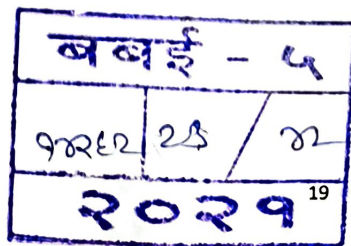 बबई - ५
१४२६२ / ४२
२०२१ 19